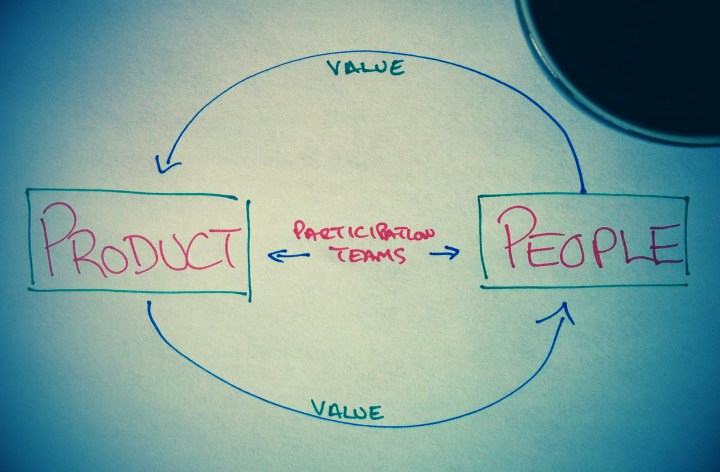 VALUE
PRODUCT
PARTICIPATION
TEAMS
PEOPLE
VALUE